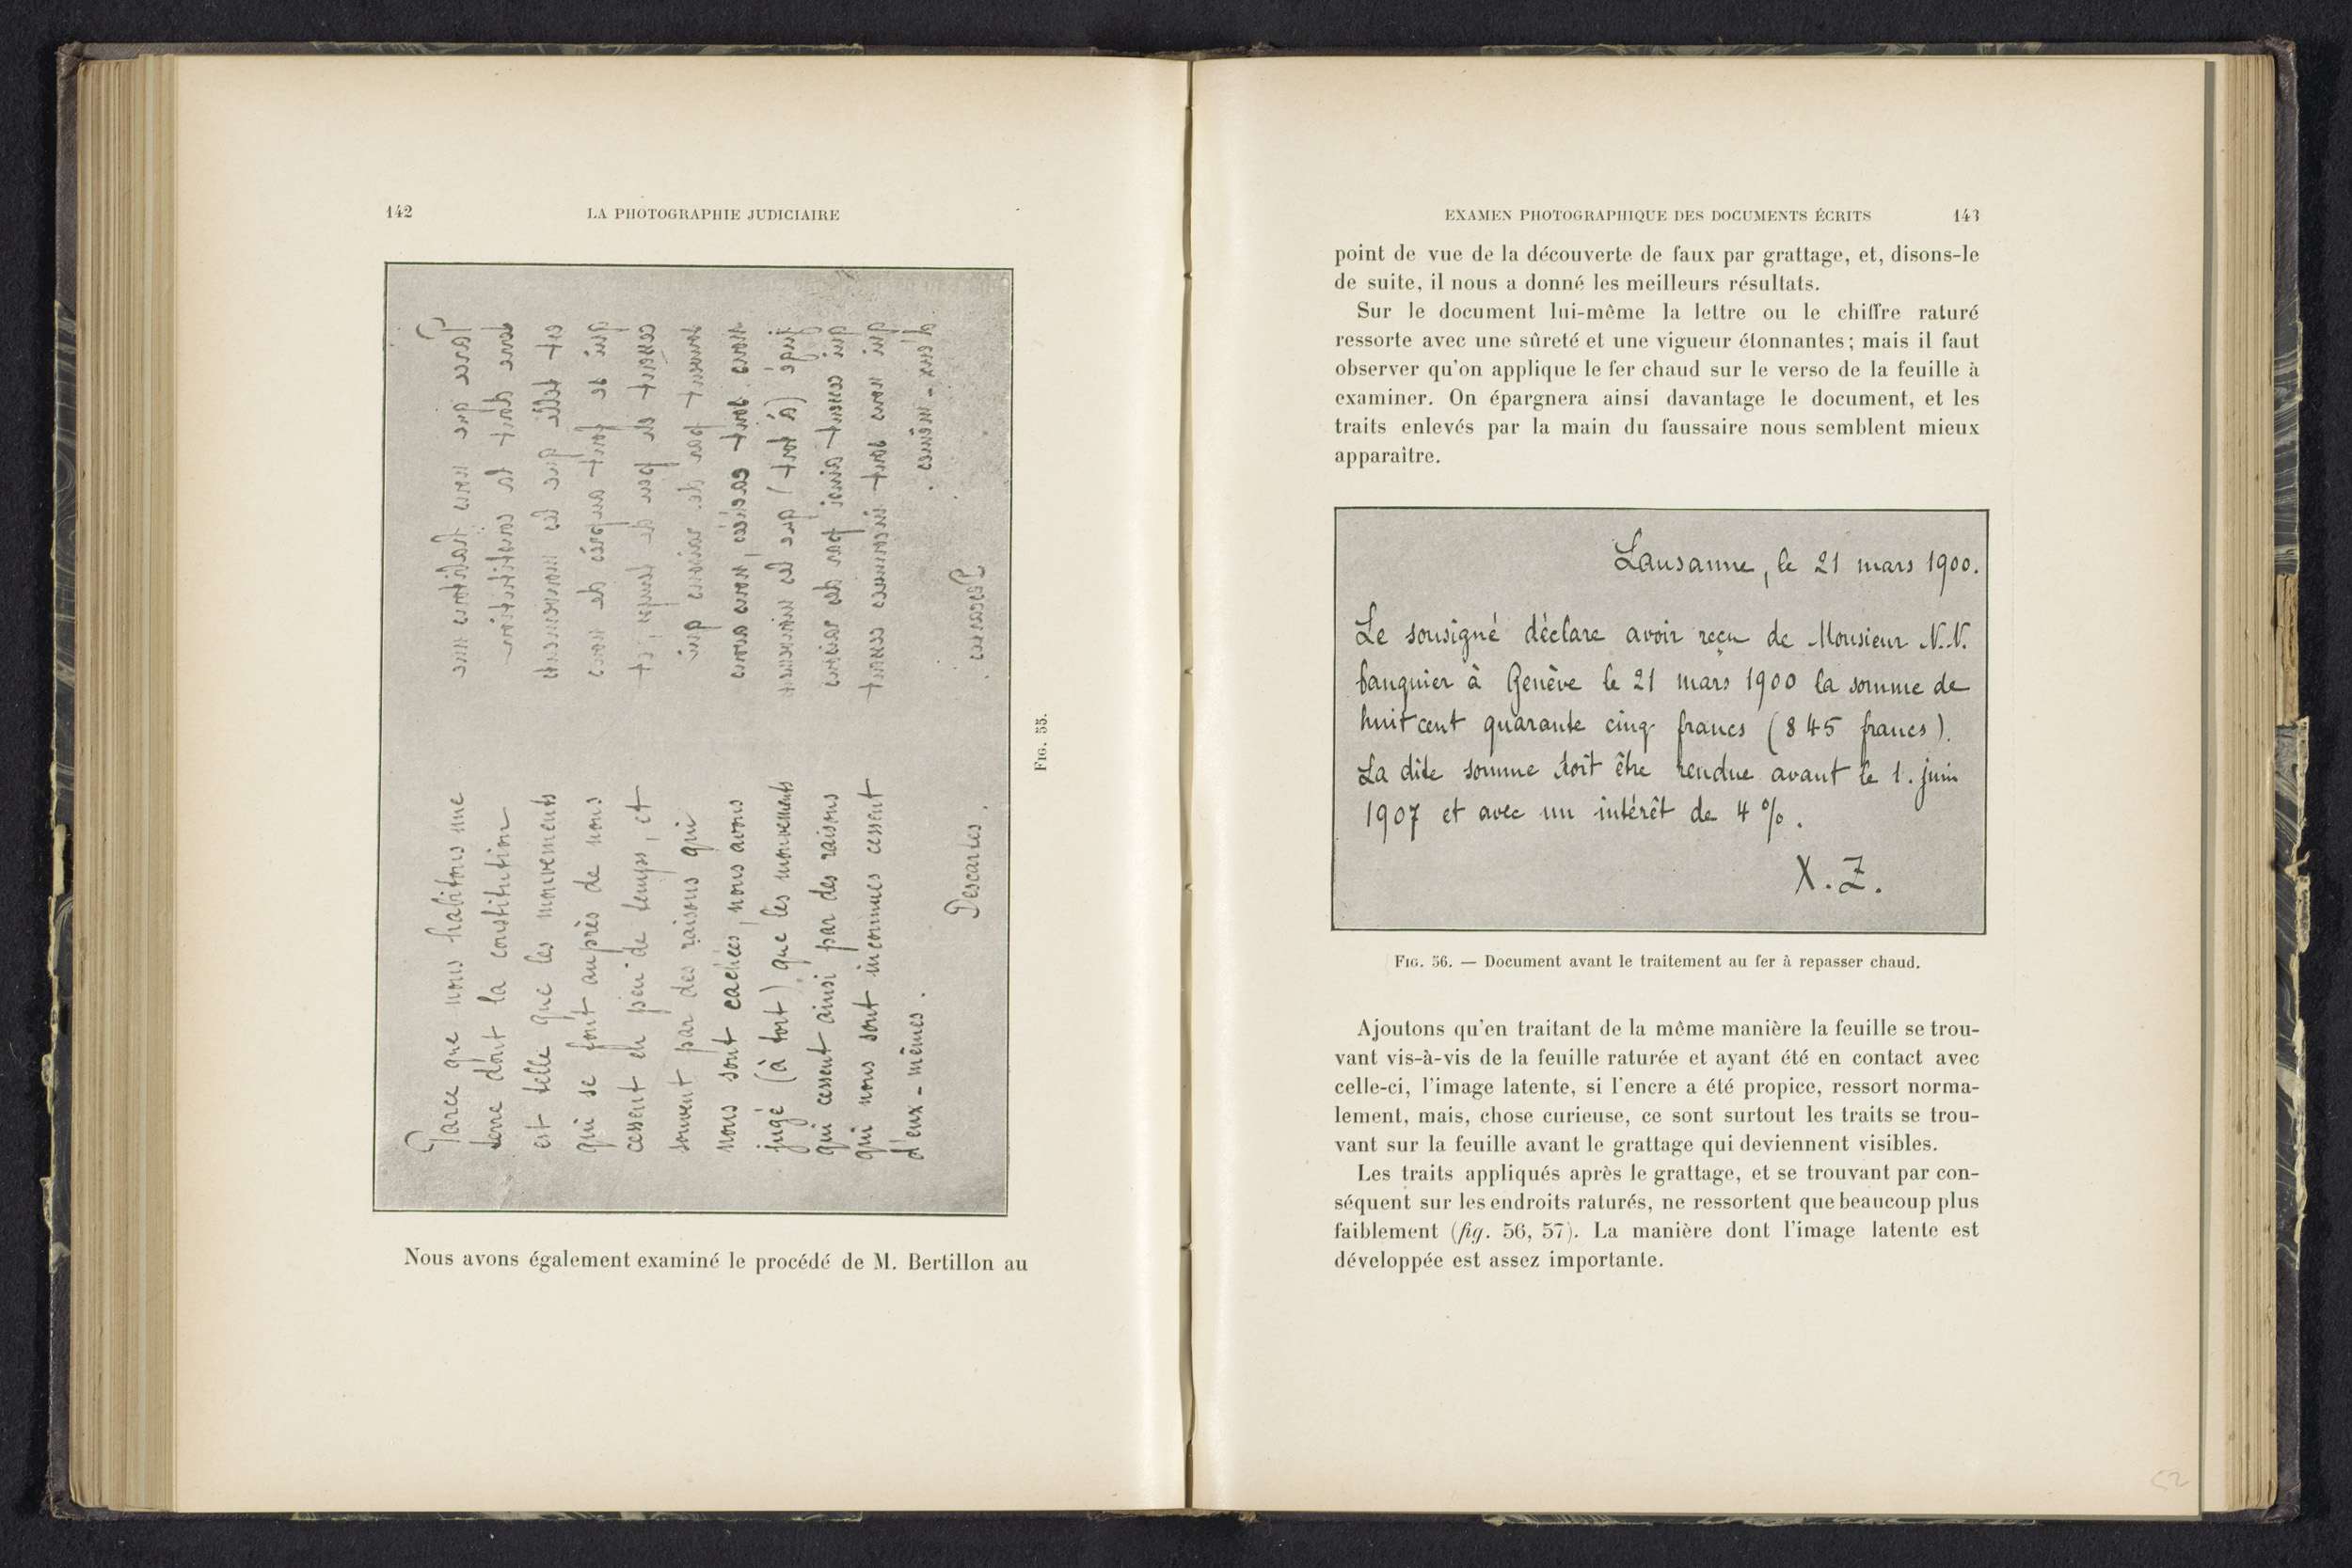 142
LA PHOTOGRAPHIE JUDICIAIRE
Parce que nous habitons une
terre dont la constitution
est telle que les mouvements
qui se font auprès de nous
cessent en peu de temps, et
souvent par des raisons qui
nous sont cachées, nous avons
jugé (à tort) que les mouvements
qui cessent ainsi par des raisons
qui nous sont inconnues cessent
d'eux-mêmes.
Descartes.
Parce que nous habitons une
terre dont la constitution
est telle que les mouvements
qui se font auprès de nous
cessent en peu de temps, et
souvent par des raisons qui
nous sont cachées, nous avons
jugé (à tort) que les mouvements
qui cessent ainsi par des raisons
qui nous sont inconnues cessent
d'eux-mêmes.
Descartes.
FIG. 55.
Nous avons également examiné le procédé de M. Bertillon au
EXAMEN PHOTOGRAPHIQUE DES DOCUMENTS ÉCRITS
143
point de vue de la découverte de faux par grattage, et, disons-le
de suite, il nous a donné les meilleurs résultats.
Sur le document lui-même la lettre ou le chiffre raturé
ressorte avec une sûreté et une vigueur étonnantes; mais il faut
observer qu'on applique le fer chaud sur le verso de la feuille à
examiner. On épargnera ainsi davantage le document, et les
traits enlevés par la main du faussaire nous semblent mieux
apparaître.
Lausanne, le 21 mars 1900.
Le sousigné déclare avoir reçu de Monsieur N.N.
banquier à Genève le 21 mars 1900 la somme de
huit cent quarante cinq francs (845 francs).
La dite somme doit être rendue avant le 1. juin
1907 et avec un intérêt de 4 %.
X.Z.
FIG. 56. — Document avant le traitement au fer à repasser chaud.
Ajoutons qu'en traitant de la même manière la feuille se trou-
vant vis-à-vis de la feuille raturée et ayant été en contact avec
celle-ci, l'image latente, si l'encre a été propice, ressort norma-
lement, mais, chose curieuse, ce sont surtout les traits se trou-
vant sur la feuille avant le grattage qui deviennent visibles.
Les traits appliqués après le grattage, et se trouvant par con-
séquent sur les endroits raturés, ne ressortent que beaucoup plus
faiblement (fig. 56, 57). La manière dont l'image latente est
développée est assez importante.
52